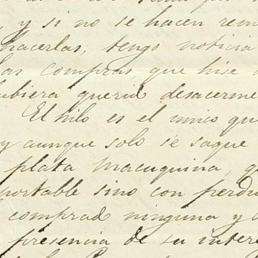 y si no se hacen rem
hacerlas, tengo noticia
las compras, que hise
ubiera querid desacerme
El hilo es el unico qu
y aunque solo se saque
plata macuquina, q
portable sino con perdi
comprad ninguna y a
presencia de su intere